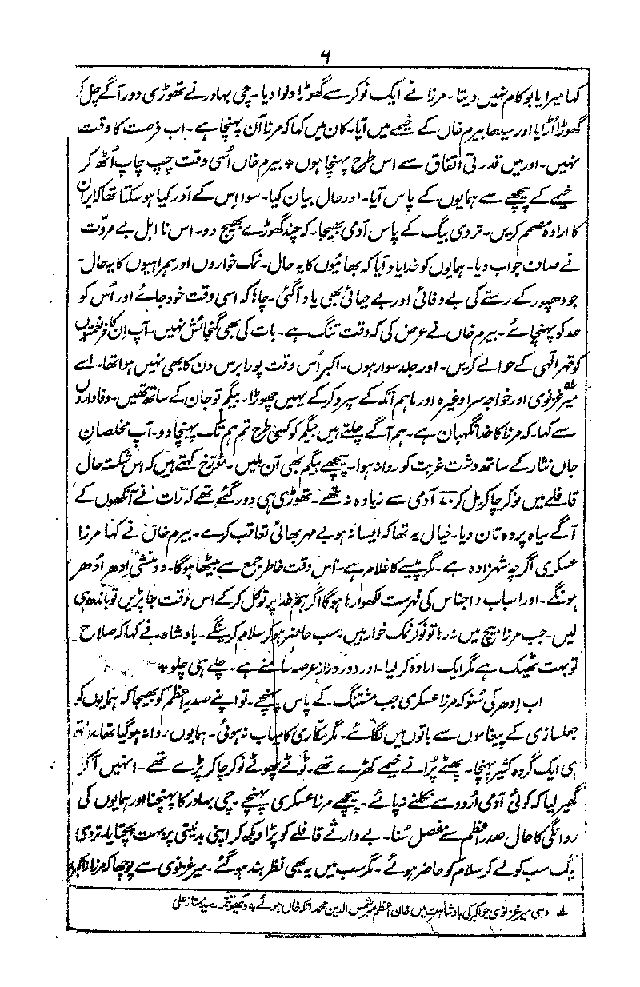 ۶
کہا میرا یابو کام نہیں دیتا ۔ مرزا نے ایک نوکر سے گھوڑا دلوا دیا ۔ چی بہادر نے تھوڑی دور آگے چل کر
گھوڑا اڑایا اور سیدھا بیرم خاں کے خیمے میں آیا ۔ کان میں کہا کہ مرزا آن پہنچا ہے ۔ اب فرصت کا وقت
نہیں ۔ اور میں قدرتی اتفاق سے اس طرح پہنچا ہوں ۔ بیرم خاں اُسی وقت چپ چاپ اُٹھ کر
خیمے کے پیچھے سے ہمایوں کے پاس آیا ۔ اور حال بیان کیا ۔ سوا اس کے اَور کیا ہو سکتا تھا کہ ایران
کا ارادہ مصمم کریں ۔ تردی بیگ کے پاس آدمی بھیجا ۔ کہ چند گھوڑے بھیج دو ۔ اس نا اہل بے مروّت
نے صاف جواب دیا ۔ ہمایوں کو خدا یاد آیا کہ بھائیوں کا یہ حال ۔ نمک خواروں اور ہمراہیوں کا یہ حال ۔
جودھپور کے رستے کی بے وفائی اور بے حیائی بھی یاد آ گئی ۔ چاہا کہ اسی وقت خود جائے اور اُس کو
حد کو پہنچائے ۔ بیرم خاں نے عرض کی کہ وقت تنگ ہے ۔ بات کی بھی گنجائش نہیں ۔ آپ ان کافر نعمتوں
کو قہرِ الٰہی کے حوالے کریں ۔ اور جلد سوار ہوں ۔ اکبر اُس وقت پورا برس دن کا بھی نہیں ہوا تھا ۔ اسے
میر غزنوی اور خواجہ سرا وغیرہ اور ماہم اتکہ کے سپرد کر کے یہیں چھوڑا ۔ بیگم تو جان کے ساتھ تھیں ۔ وفاداروں
سے کہا کہ مرزا کا خدا نگہبان ہے ۔ ہم آگے چلتے ہیں بیگم کو کسی طرح تم ہم تک پہنچا دو ۔ آپ مخلصان
جاں نثار کے ساتھ دشتِ غربت کو روانہ ہوا ۔ پیچھے بیگم بھی آن ملیں ۔ مؤرخ کہتے ہیں کہ اس شکستہ حال
قافلے میں نوکر چاکر مل کر ۷۰ آدمی سے زیادہ نہ تھے ۔ تھوڑی ہی دور گئے تھے کہ رات نے آنکھوں کے
آگے سیاہ پردہ تان دیا ۔ خیال یہ تھا کہ ایسا نہ ہو بے مہر بھائی تعاقب کرے ۔ بیرم خاں نے کہا مرزا
عسکری اگرچہ شہزادہ ہے ۔ مگر پیسے کا غلام ہے ۔ اس وقت خاطر جمع سے بیٹھا ہوگا ۔ دو منشی اِدھر اُدھر
ہونگے ۔ اور اسباب و اجناس کی فہرست لکھوا رہا ہوگا اگر ہم خدا پر توکل کر کے اس وقت جا پڑیں تو باندھ ہی
لیں ۔ جب مرزا بیچ میں نہ رہا تو نوکر نمک خوار ہیں سب حاضر ہو کر سلام کرینگے ۔ بادشاہ نے کہا کہ صلاح
تو بہت ٹھیک ہے مگر ایک ارادہ کر لیا ۔ اور دور دراز عرصہ سامنے ہے ۔ چلے ہی چلو ۔
اب اِدھر کی سنو کہ مرزا عسکری جب مشتنگ کے پاس پہنچے ۔ تو اپنے صدرِ اعظم کو بھیجا کہ ہمایوں کو
جعلسازی کے پیغاموں سے باتوں میں لگائے ۔ مگر مکاری کامیاب نہ ہوئی ۔ ہمایوں روانہ ہو گیا تھا ۔ ساتھ
ہی ایک گروہ کثیر پہنچا ۔ پھٹے پرانے خیمے کھڑے تھے ۔ ٹوٹے پھوٹے نوکر چاکر پڑے تھے ۔ انہیں آ کر
گھیر لیا کہ کوئی آدمی اُردو سے نکلنے نہ پائے ۔ پیچھے مرزا عسکری پہنچے ۔ چی بہادر کا پہنچنا اور ہمایوں کی
روانگی کا حال صدر اعظم سے مفصل سُنا ۔ بے وارثے قافلے کو پڑا دیکھ کر اپنی بدنیتی پر بہت پچھتایا ۔ تردی
بیگ سب کو لے کر سلام کو حاضر ہوئے ۔ مگر سب میں یہ بھی نظر بند ہو گئے ۔ میر غزنوی سے پوچھا کہ مرزا
وہی میر غزنوی جو اکبر کی بادشاہت میں خانِ اعظم میر شمس الدین محمد اتکہ خاں ہوئے ۔ دیکھو تتمہ